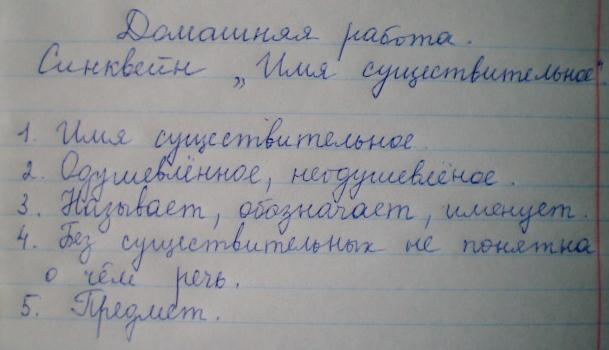 Домашняя работа.
Синквейн „Имя существительное".
1. Имя существительное.
2. Одушевлённое, неодушевлёное.
3. Называет, обозначает, именует.
4. Без существительных не понятна
о чём речь.
5. Предмет.